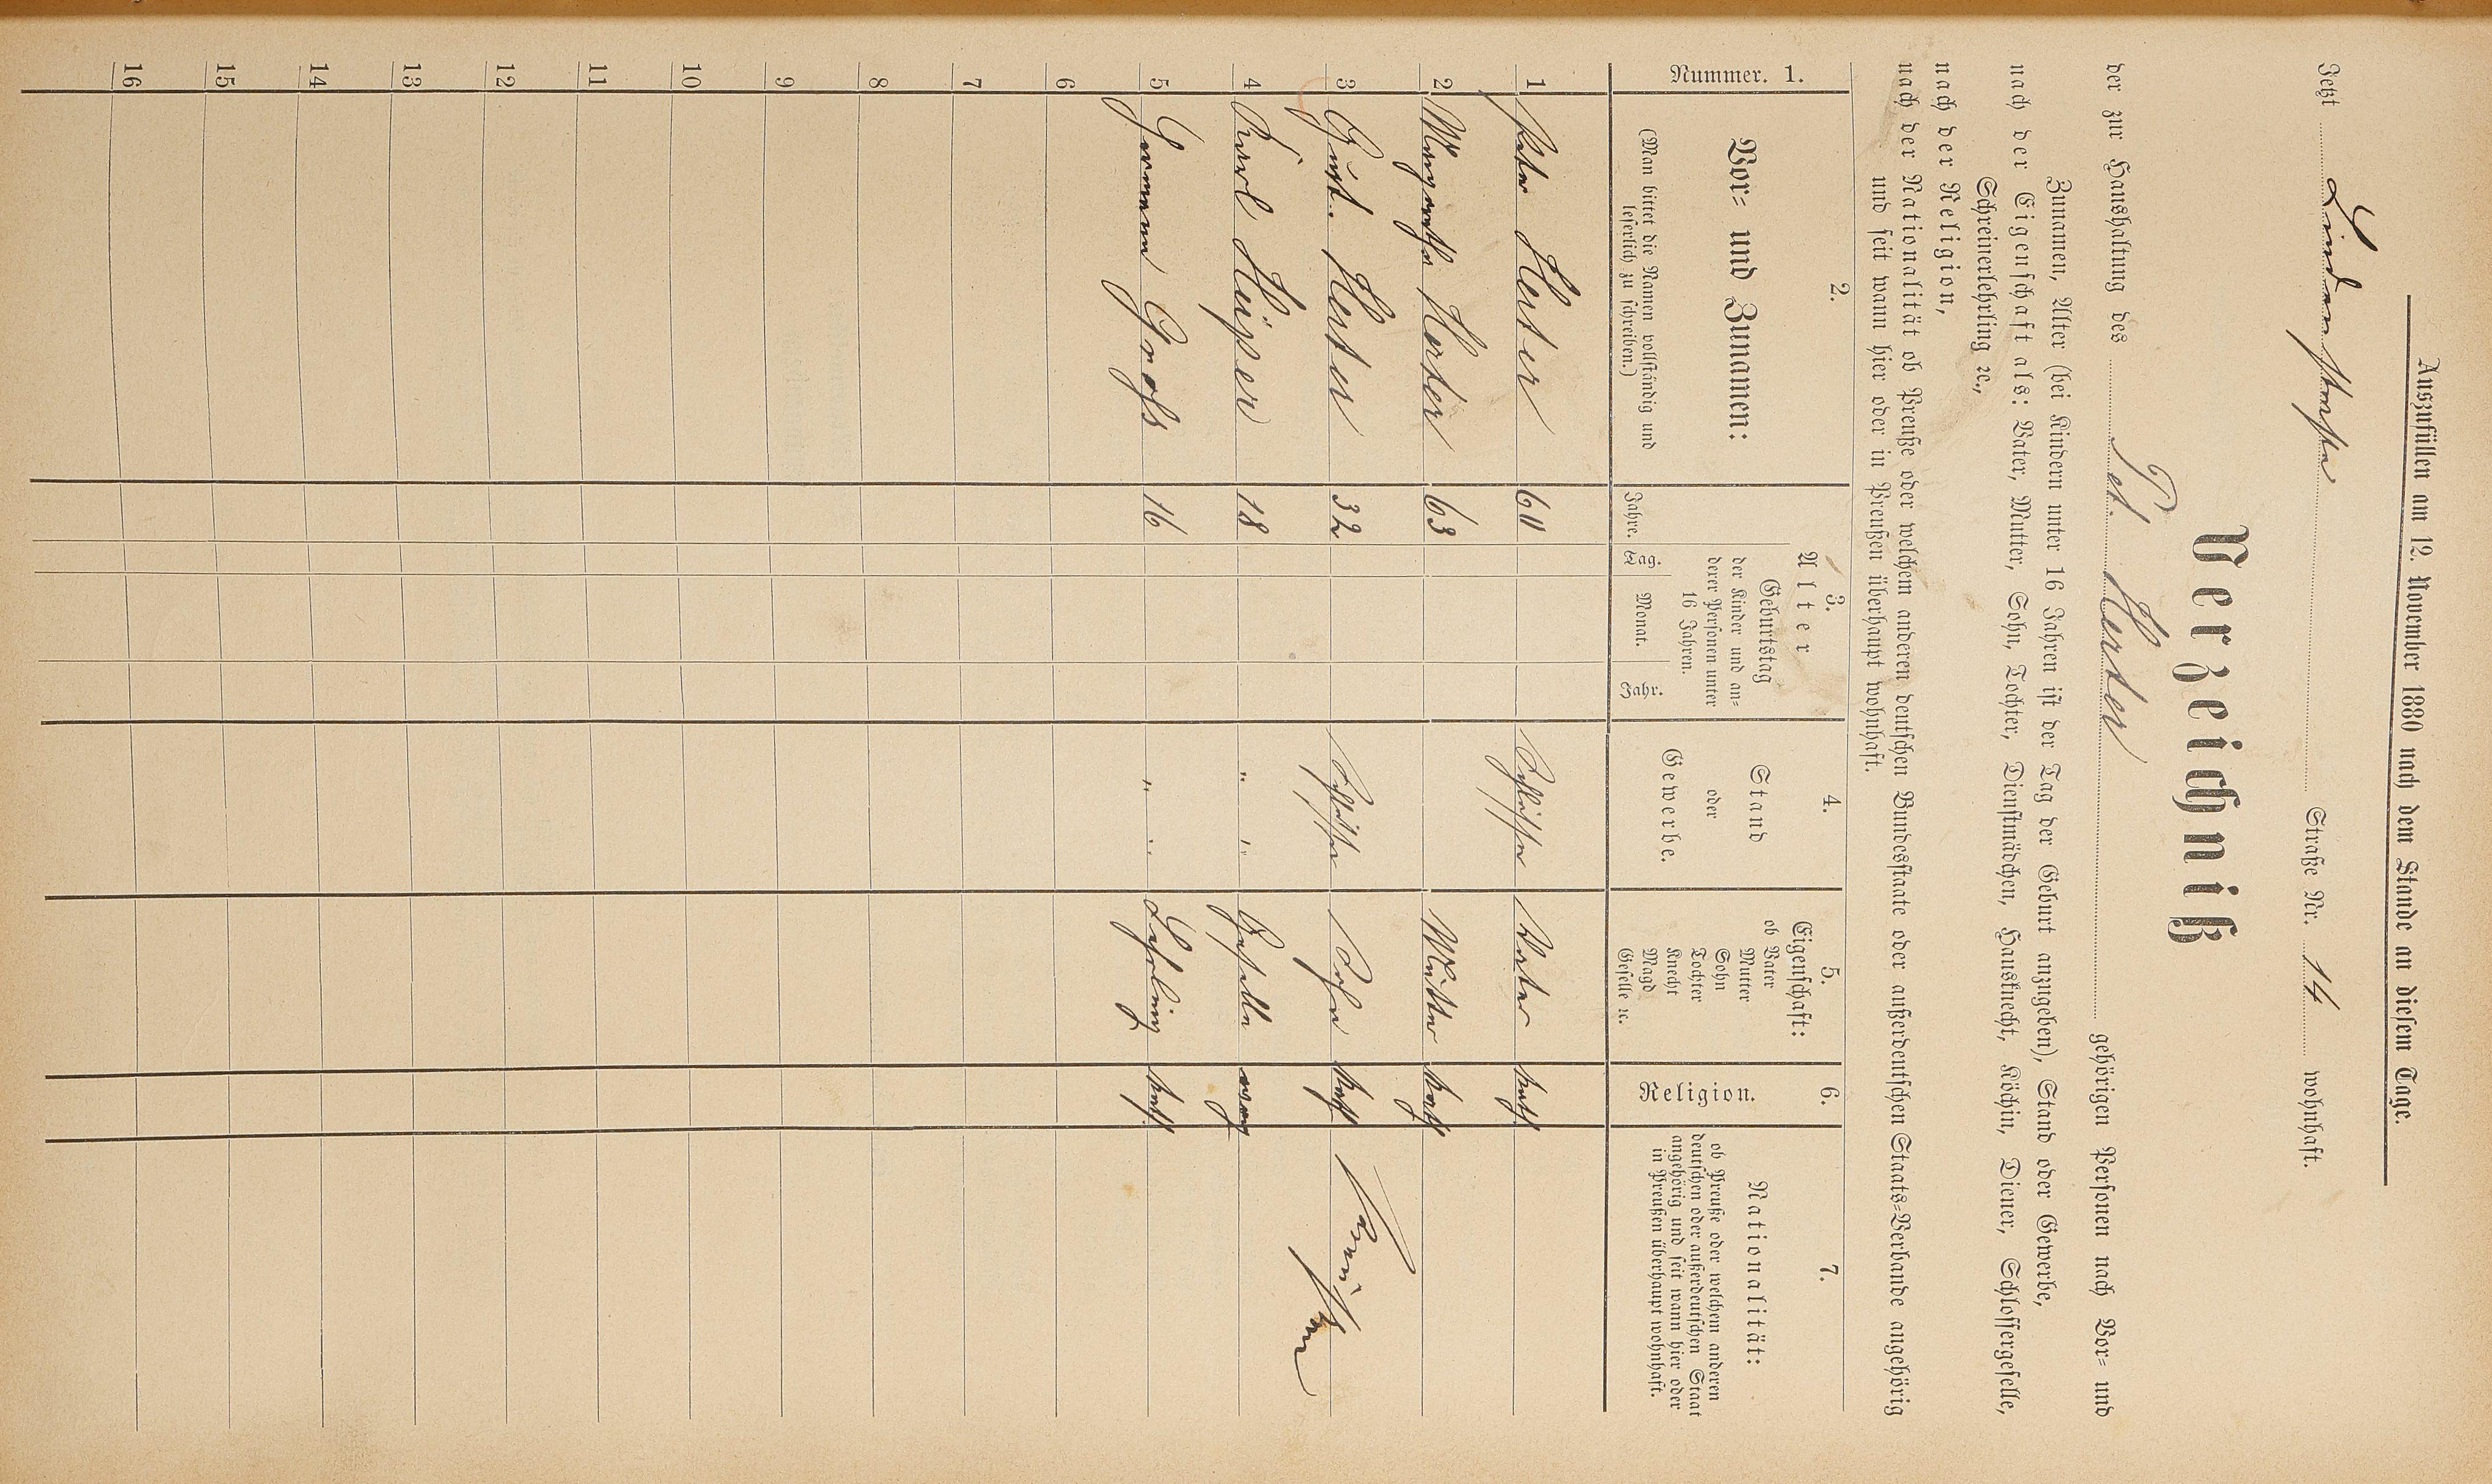 Auszufüllen am 12. November 1880 nach dem Stande an diesem Tage.
Jetzt Lindenstraße Straße Nr. 14 wohnhaft.
Verzeichniß
der zur Haushaltung des Pet. Herter gehörigen Personen nach Vor= und
Zunamen, Alter (bei Kindern unter 16 Jahren ist der Tag der Geburt anzugeben), Stand oder Gewerbe,
nach der Eigenschaft als: Vater, Mutter, Sohn, Tochter, Dienstmädchen, Hausknecht, Köchin, Diener, Schlossergeselle,
Schreinerlehrling ꝛc.,
nach der Religion,
nach der Nationalität ob Preuße oder welchem anderen deutschen Bundesstaate oder außerdeutschen Staats=Verbande angehörig
und seit wann hier oder in Preußen überhaupt wohnhaft.
Nummer. 1.
2.
Vor= und Zunamen:
(Man bittet die Namen vollständig und
leserlich zu schreiben.)
3.
Alter
Jahre.
Geburtstag
der Kinder und an=
derer Personen unter
16 Jahren.
Tag. Monat. Jahr.
4.
Stand
oder
Gewerbe.
5.
Eigenschaft:
ob Vater
Mutter
Sohn
Tochter
Knecht
Magd
Geselle ꝛc.
6.
Religion.
7.
Nationalität:
ob Preuße oder welchem anderen
deutschen oder außerdeutschen Staat
angehörig und seit wann hier oder
in Preußen überhaupt wohnhaft.
1 Peter Herter 60 Schlosser Vater kath.
2 Margaretha Herter 63 Mutter kath
3 Gust. Herter 32 Schlosser Sohn kath Preußen
4 Karl 18 " " Geselle evang
5 Hermann Groß 16 " " Lehrling kath.
6
7
8
9
10
11
12
13
14
15
16